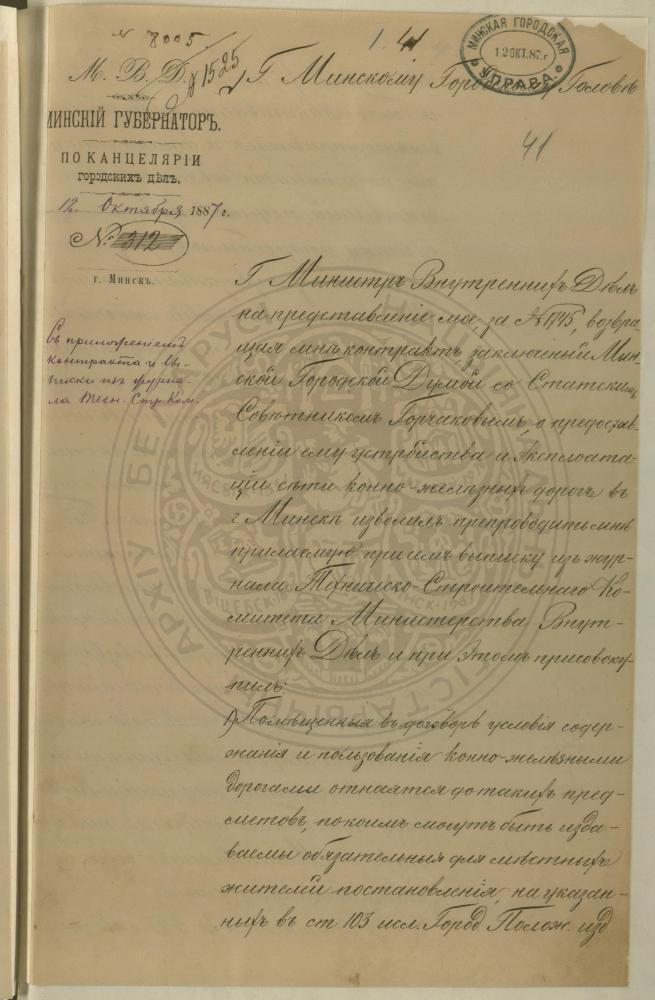 № 8005
1. 41
М. В. Д.
№ 1525
Г Минскому Городскому Головѣ
МИНСКАЯ ГОРОДСКАЯ
12 ОКТ. 87 г
УПРАВА.
МИНСКІЙ ГУБЕРНАТОРЪ.
ПО КАНЦЕЛЯРІИ
городскихъ дѣлъ.
12 Октября 1887 г.
№ 312
г. Минскъ.
41
Съ приложеніемъ
контракта и вы-
писки изъ журна-
ла Техн. Стр. Ком.
Г Министръ Внутреннихъ Дѣлъ
на представленіе мое, за № 1745, возвра-
щая мнѣ контрактъ, заключеный Мин-
ской Городской Думой со Статскимъ
Совѣтникомъ Горчаковымъ, о предостав-
леніи ему устройства и эксплоата-
ціи сѣти конно-желѣзныхъ дорогъ въ
г. Минскѣ изволилъ препроводить мнѣ
прилагаемую при семъ выписку изъ жур-
нала Техническо-Строительнаго Ко-
митета Министерства Внут-
реннихъ Дѣлъ и при этомъ присовоку-
пилъ:
1) Помѣщенныя въ договорѣ условія содер-
жанія и пользованія конно-желѣзными
дорогами относятся до такихъ пред-
метовъ, по коимъ могутъ быть изда-
ваемы обязательныя для мѣстныхъ
жителей постановленія, на указан-
ныхъ въ ст 103 Город. Полож. изд
АРХІЎ БЕЛАРУСІ